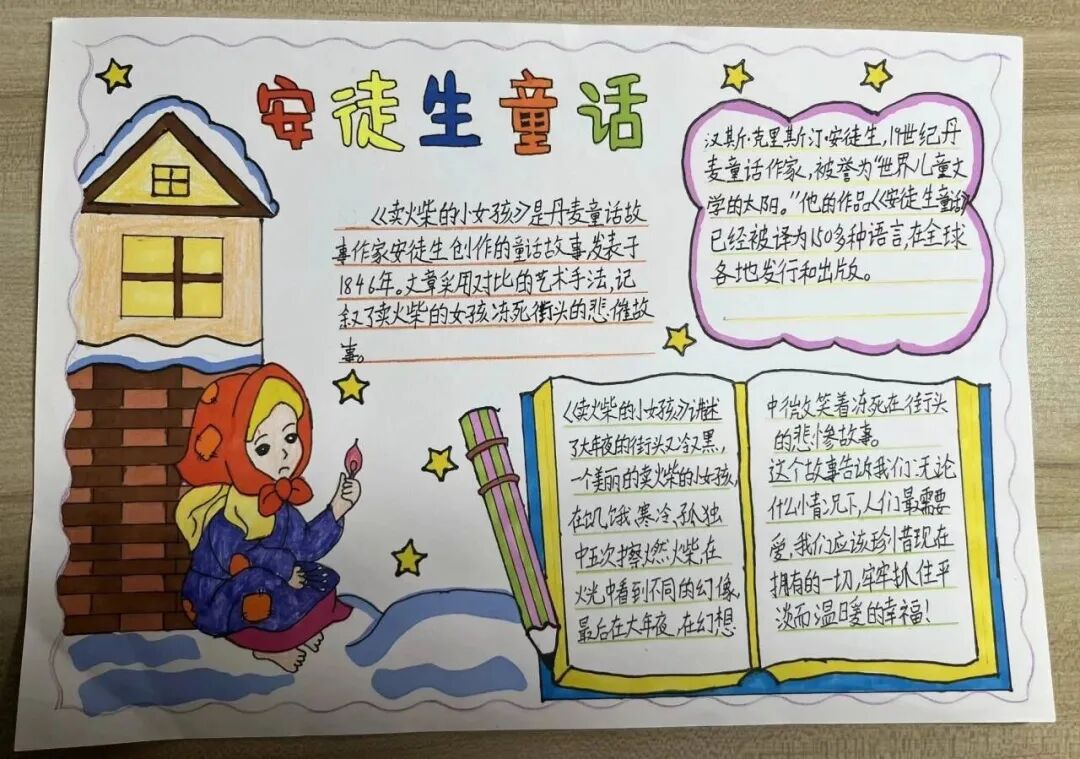 安徒生童话
《卖火柴的小女孩》是丹麦童话故
事作家安徒生创作的童话故事发表于
1846年。文章采用对比的艺术手法,记
叙了卖火柴的女孩冻死街头的悲催故
事。
汉斯·克里斯汀·安徒生,19世纪丹
麦童话作家,被誉为"世界儿童文
学的太阳。"他的作品《安徒生童话》
已经被译为150多种语言,在全球
各地发行和出版。
《卖火柴的小女孩》讲述
了大年夜的街头又冷又黑,
一个美丽的卖火柴的小女孩,
在饥饿、寒冷、孤独
中五次擦燃火柴在
火光中看到不同的幻像,
最后在大年夜,在幻想
中微笑着冻死在街头
的悲惨故事。
这个故事告诉我们:无论
什么情况下,人们最需要
爱,我们应该珍惜现在
拥有的一切,牢牢抓住平
淡而温暖的幸福!